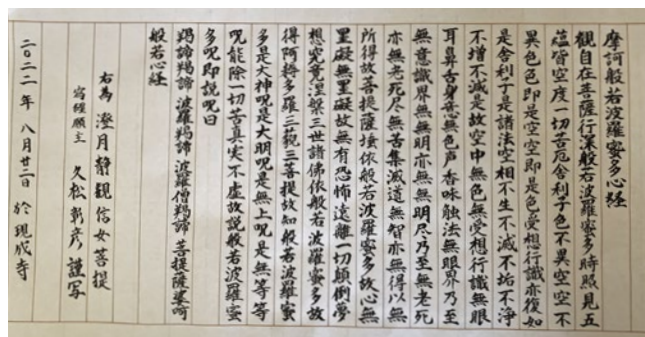 摩訶般若波羅蜜多心経
観自在菩薩行深般若波羅蜜多時照見五
蘊皆空度一切苦厄舎利子色不異空空不
異色色即是空空即是色受想行識亦復如
是舎利子是諸法空相不生不滅不垢不浄
不増不減是故空中無色無受想行識無眼
耳鼻舌身意無色声香味触法無眼界乃至
無意識界無無明亦無無明尽乃至無老死
亦無老死尽無苦集滅道無智亦無得以無
所得故菩提薩埵依般若波羅蜜多故心無
罣礙無罣礙故無有恐怖遠離一切顛倒夢
想究竟涅槃三世諸佛依般若波羅蜜多故
得阿耨多羅三藐三菩提故知般若波羅蜜
多是大神呪是大明呪是無上呪是無等等
呪能除一切苦真実不虚故説般若波羅蜜
多呪即説呪曰
羯諦羯諦 波羅羯諦 波羅僧羯諦 菩提薩婆訶
般若心経
右為 澄月静観信女菩提
写経願主 久松彰彦 謹写
二〇二二年 八月廿二日 於現成寺